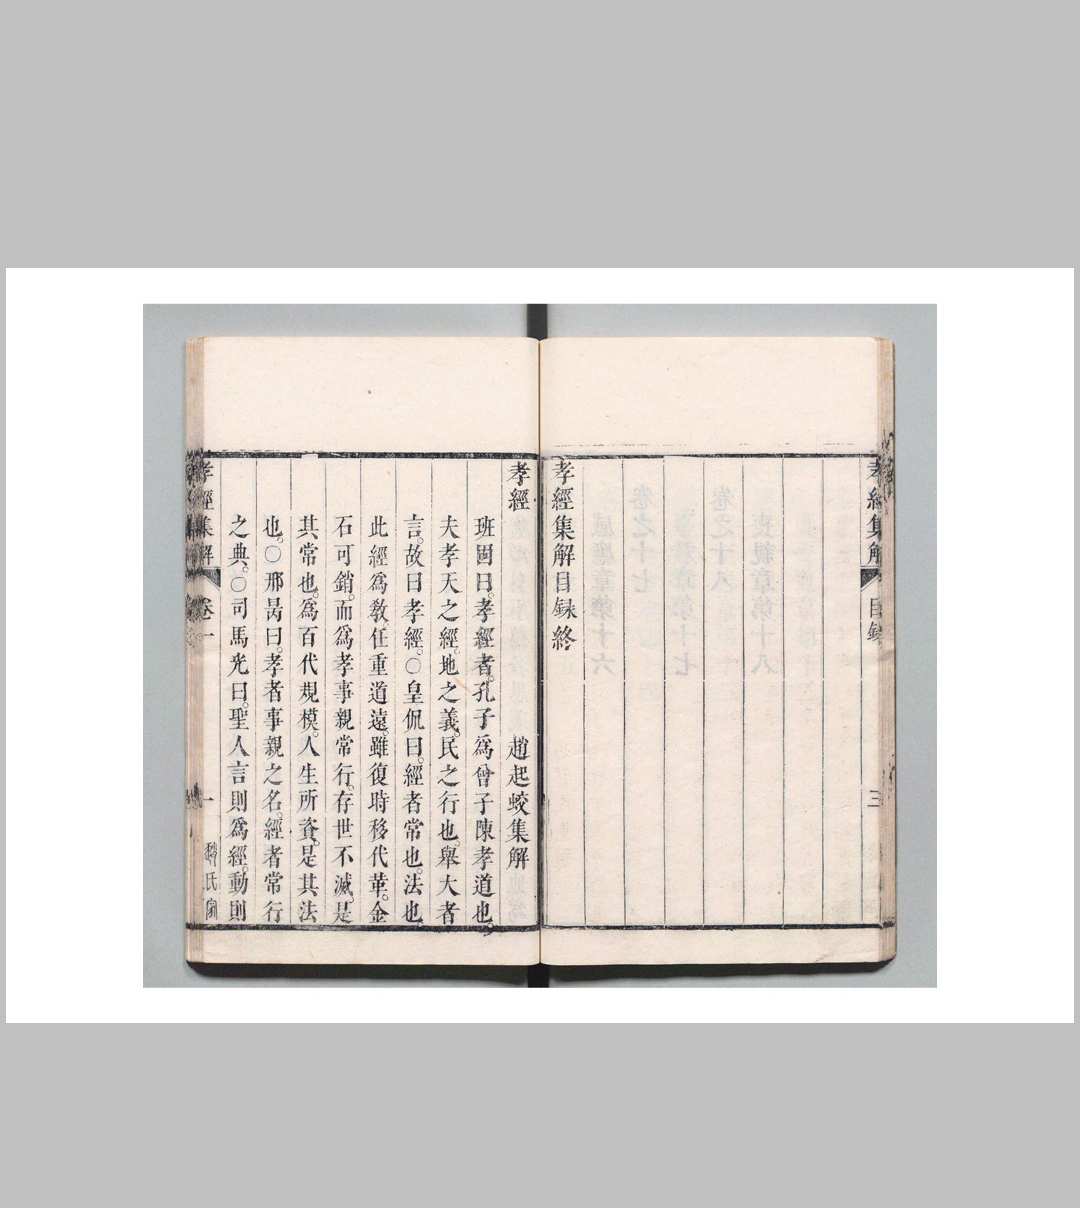 孝經集解 目録 三
孝經集解目録終
孝經 趙起蛟集解
班固曰。孝經者。孔子爲曾子陳孝道也。
夫孝天之經。地之義。民之行也。舉大者
言。故曰孝經。○皇侃曰。經者常也。法也。
此經爲敎。任重道遠。雖復時移代革。金
石可銷。而爲孝事親常行。存世不滅。是
其常也。爲百代規模。人生所資。是其法
也。○邢昺曰。孝者事親之名。經者常行
之典。○司馬光曰。聖人言則爲經。動則
孝經集解 卷一 一